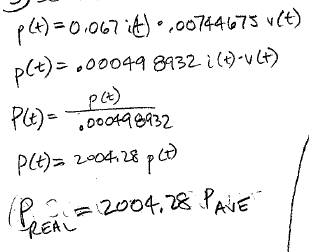 p(t) = 0.067 i(t) · .00744675 v(t)
p(t) = .000498932 i(t)·v(t)
P(t) = p(t) / .000498932
P(t) = 2004.28 p(t)
P REAL = 2004.28 P AVE